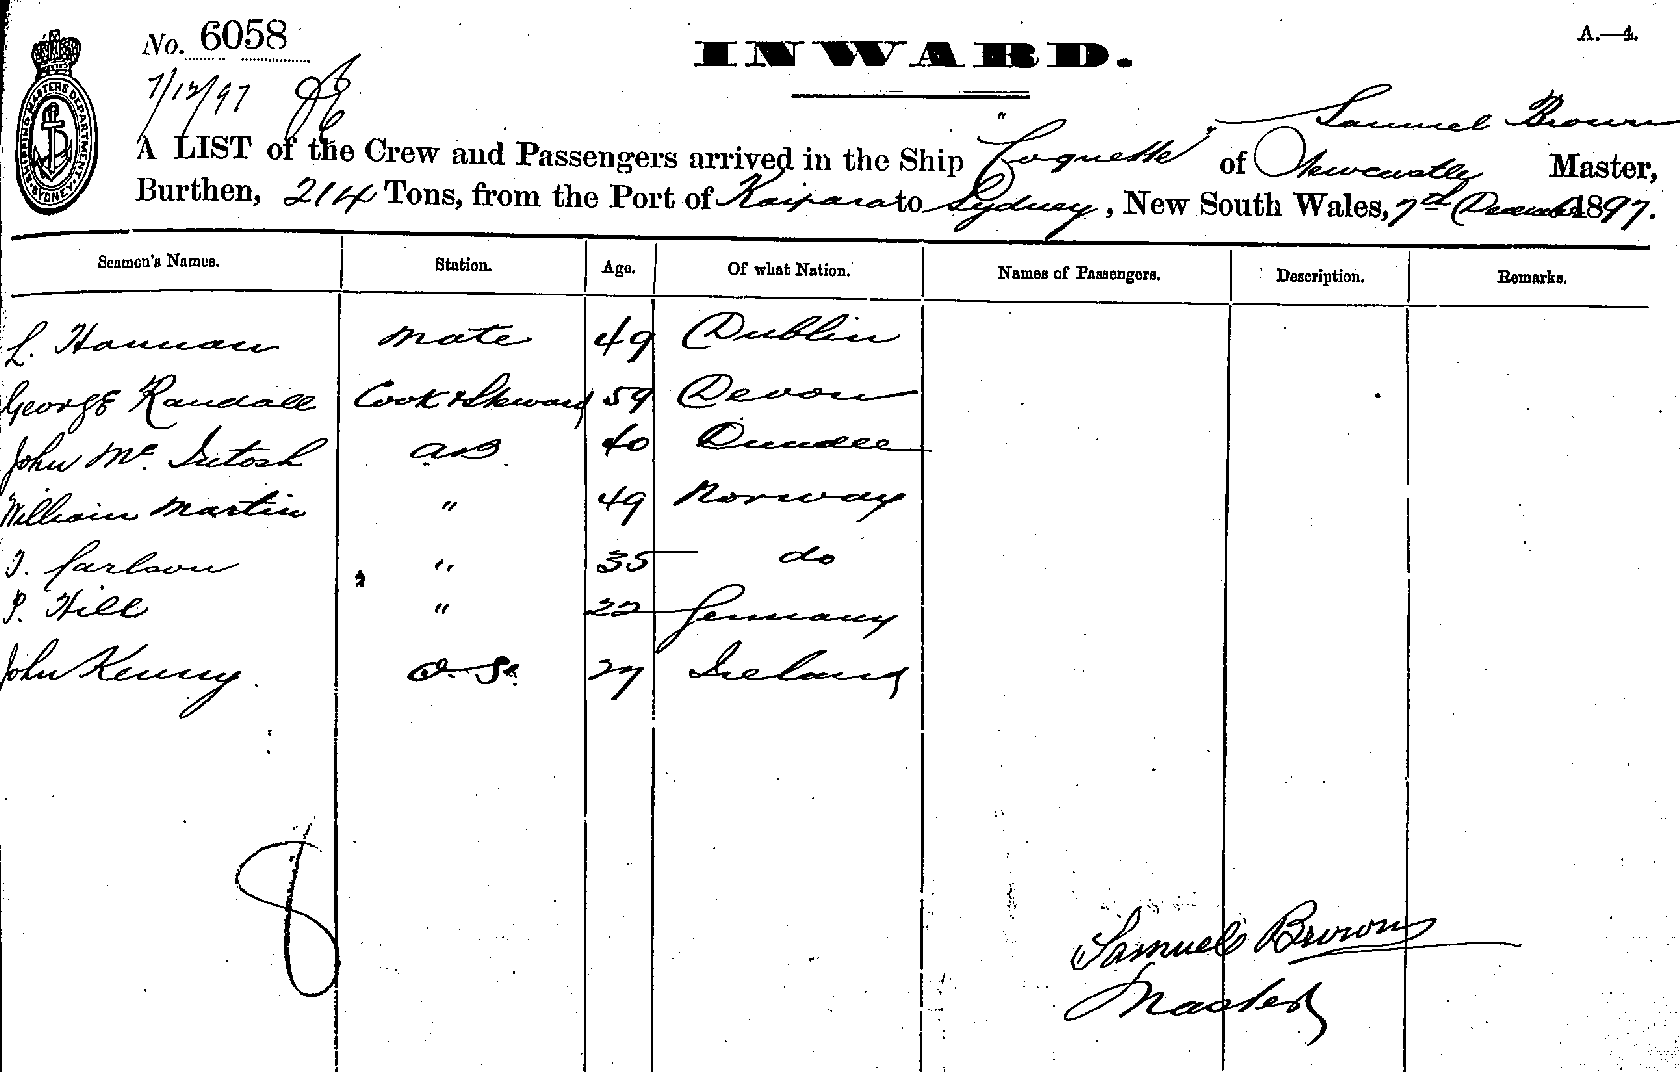 No. 6058
INWARD.
A.—4.
7/12/97
Samuel Brown
A LIST of the Crew and Passengers arrived in the Ship "Coquette" of Newcastle Master,
Burthen, 214 Tons, from the Port of Kaipara to Sydney, New South Wales, 7th December 1897.
Seamen's Names. Station. Age. Of what Nation. Names of Passengers. Description. Remarks.
L. Hannan Mate 49 Dublin
George Randall Cook & Steward 59 Devon
John Mc Intosh AB 40 Dundee
William Martin " 49 Norway
J. Carlson " 35 do
P. Hill " 22 Germany
John Kenny O.S. 27 Ireland
8
Samuel Brown
Master